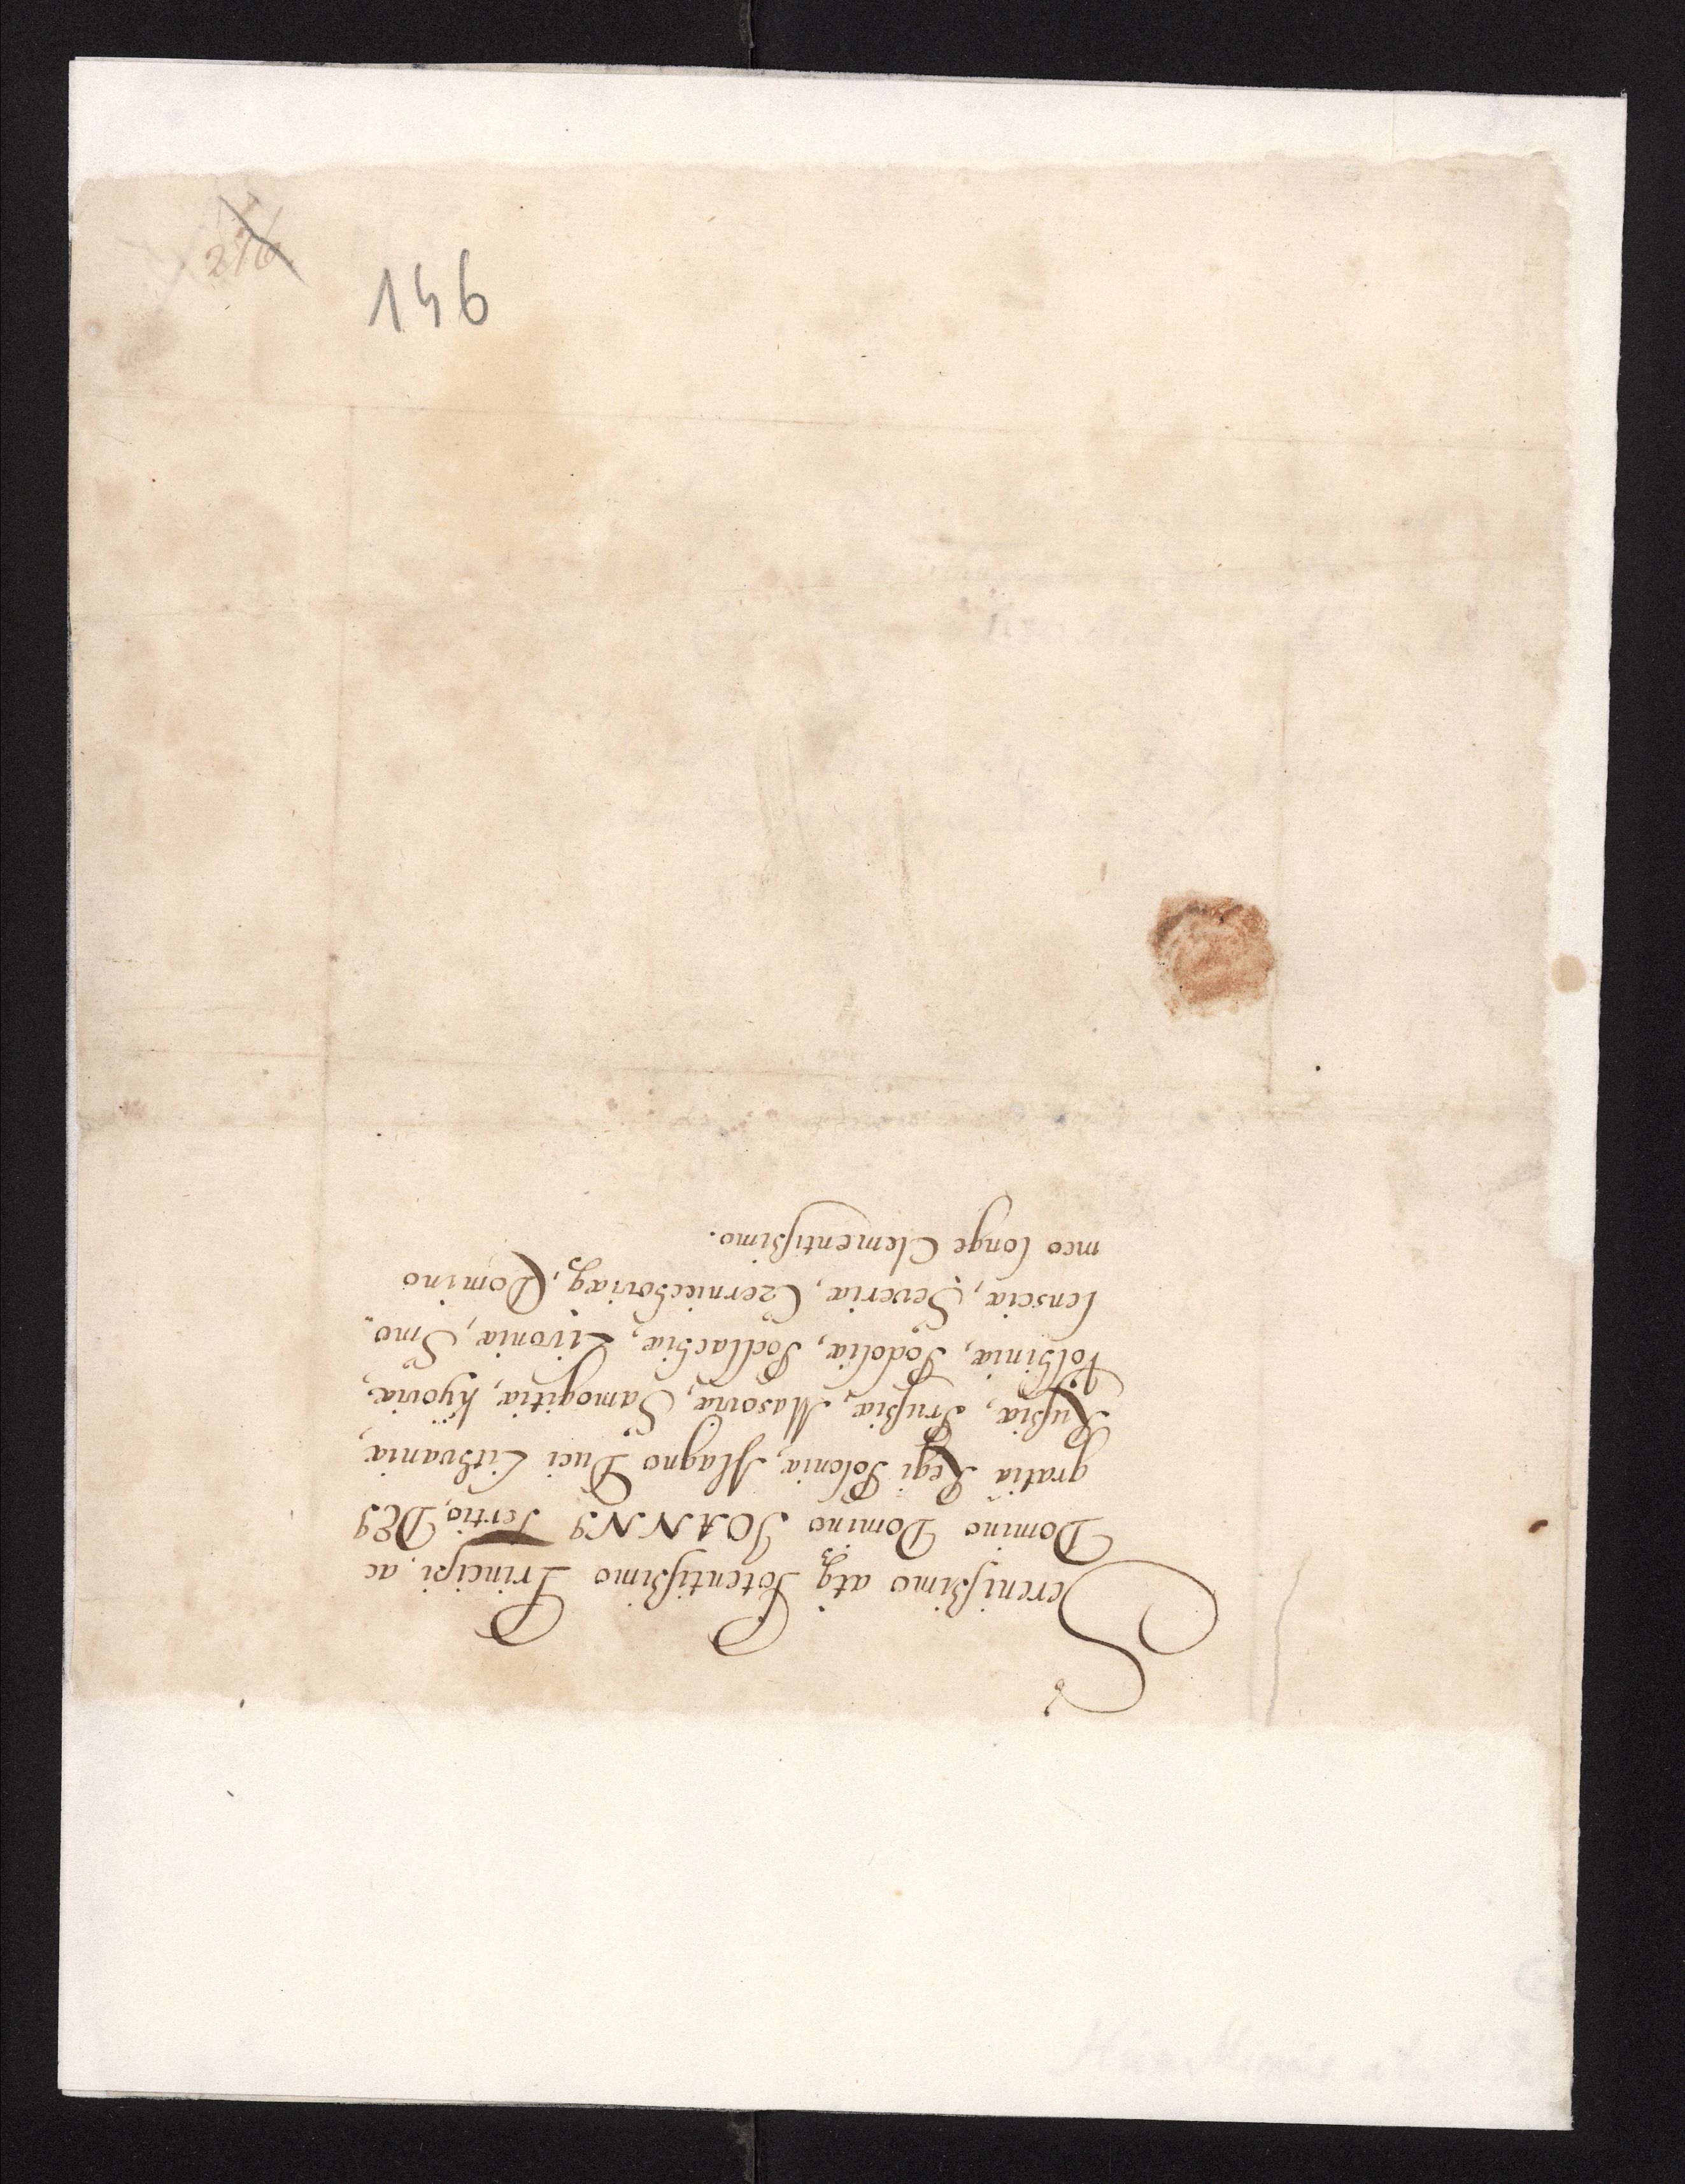 146
Serenißimo atq3 Potentißimo Principi, ac
Domino Domino JOANNJ Tertio, DEJ
gratia Regi Poloniæ, Magno Duci Lithvaniæ,
Rußiæ, Prußiæ, Masoviæ, Samogitiæ, Kÿoviæ,
Volhiniæ, Podoliæ, Podlachiæ, Livoniæ, Smo„
lensciæ, Severiæ, Czerniechoviæq3, Domino
meo longe Clementißimo.